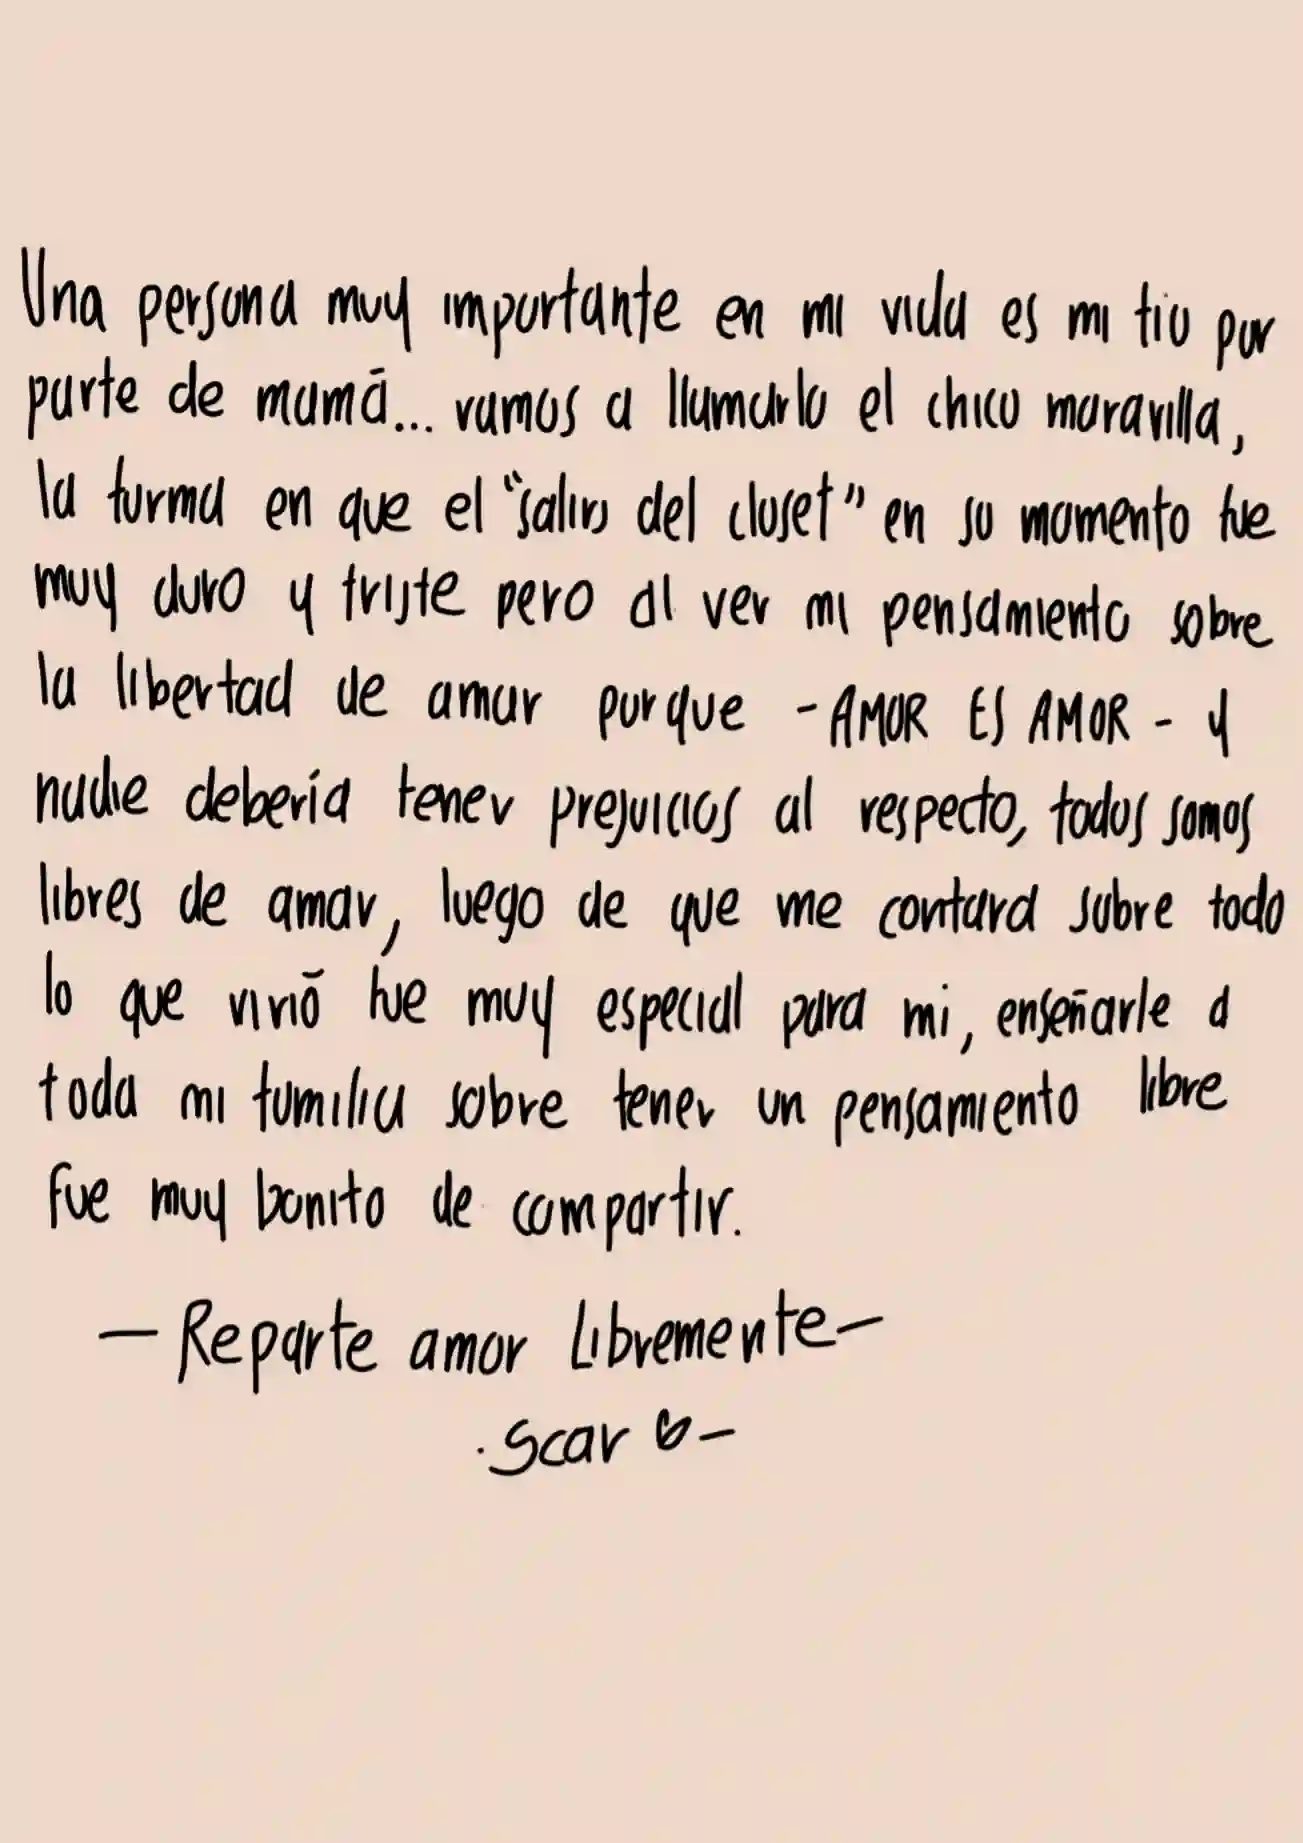 Una persona muy importante en mi vida es mi tio por
parte de mamá... vamos a llamarlo el chico maravilla,
la forma en que el "salio del closet" en su momento fue
muy duro y triste pero al ver mi pensamiento sobre
la libertad de amar porque - AMOR ES AMOR - y
nadie debería tener prejuicios al respecto, todos somos
libres de amar, luego de que me contara sobre todo
lo que vivió fue muy especial para mi, enseñarle a
toda mi familia sobre tener un pensamiento libre
fue muy bonito de compartir.
— Reparte amor Libremente —
. Scar ♡ -